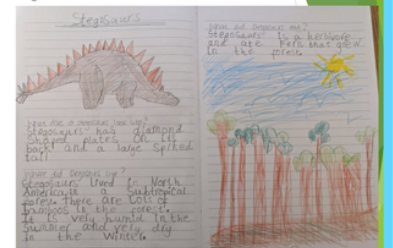 Stegosaurs
What did a
Stegosaurs has diamond
shaped plates on it
back and a large spiked
tail
Where did
Stegosaurs lived in North
America, in a Subtropical
forest. There are lots of
in the forest.
It is very humid in the
summer and very dry
in the Winter.
What did eat?
Stegosaurs is a herbivore
and ate Fern that grew
in the forest.